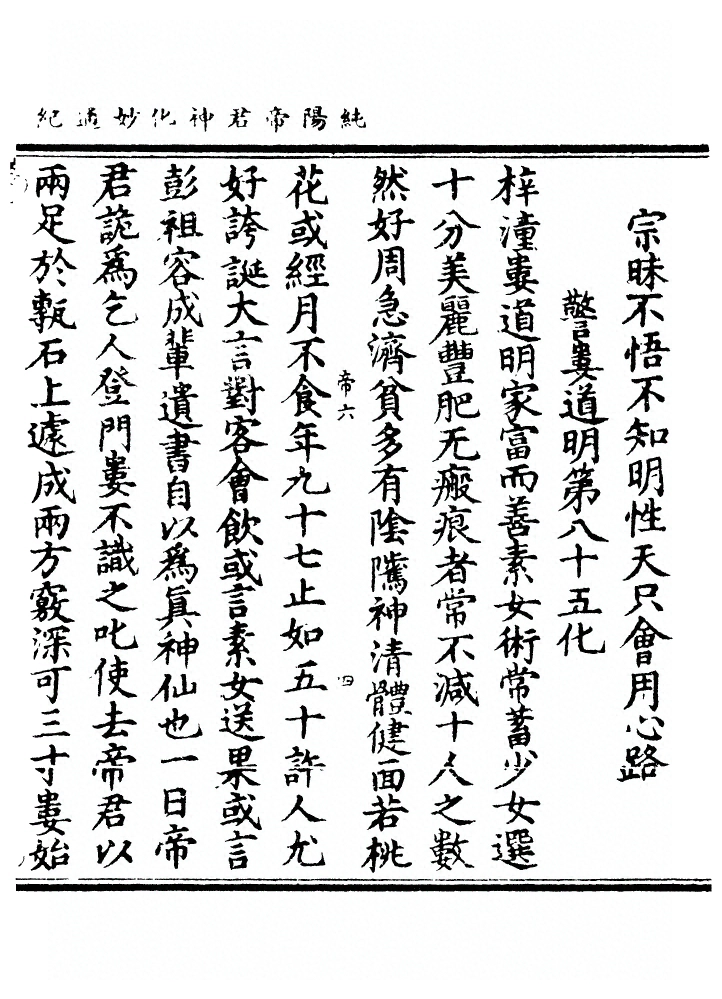 純陽帝君神化妙通紀
宗昧不悟不知明性天只會用心路
警婁道明第八十五化
梓潼婁道明家富而善素女術常蓄少女選
十分美麗豐肥无瘢痕者常不減十人之數
然好周急濟貧多有陰隲神清體健面若桃
帝六
四
花或經月不食年九十七止如五十許人尤
好誇誕大言對客會飲或言素女送果或言
彭祖容成輩遺書自以爲眞神仙也一日帝
君詭爲乞人登門婁不識之叱使去帝君以
兩足於甎石上遽成兩方竅深可三寸婁始